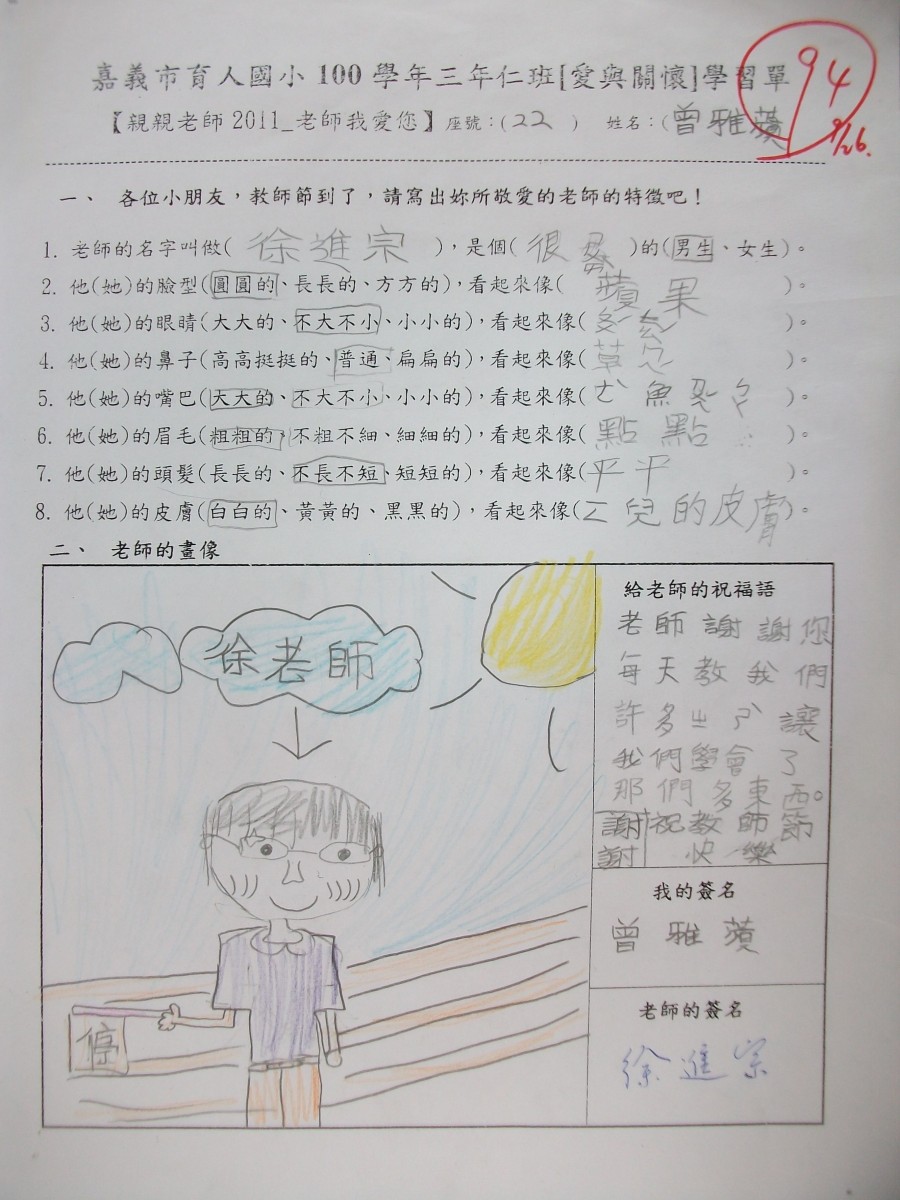 嘉義市育人國小 100 學年三年仁班[愛與關懷]學習單
94
9/26.
【親親老師 2011_老師我愛您】座號:(22) 姓名:(曾雅蘋
一、 各位小朋友,教師節到了,請寫出妳所敬愛的老師的特徵吧!
1. 老師的名字叫做(徐進宗),是個(很ㄕㄞˋ)的(男生、女生)。
2. 他(她)的臉型(圓圓的、長長的、方方的),看起來像(蘋果)。
3. 他(她)的眼睛(大大的、不大不小、小小的),看起來像( )。
4. 他(她)的鼻子(高高挺挺的、普通、扁扁的),看起來像(草 )。
5. 他(她)的嘴巴(大大的、不大不小、小小的),看起來像( 魚 )。
6. 他(她)的眉毛(粗粗的、不粗不細、細細的),看起來像(點點)。
7. 他(她)的頭髮(長長的、不長不短、短短的),看起來像(平平)。
8. 他(她)的皮膚(白白的、黃黃的、黑黑的),看起來像( 兒的皮膚)。
二、 老師的畫像
徐老師
停
給老師的祝福語
老師謝謝您
每天教我們
許多ㄓㄕˋ讓
我們學會了
那們多東西。
謝謝
祝教師節
快樂
我的簽名
曾雅蘋
老師的簽名
徐進宗